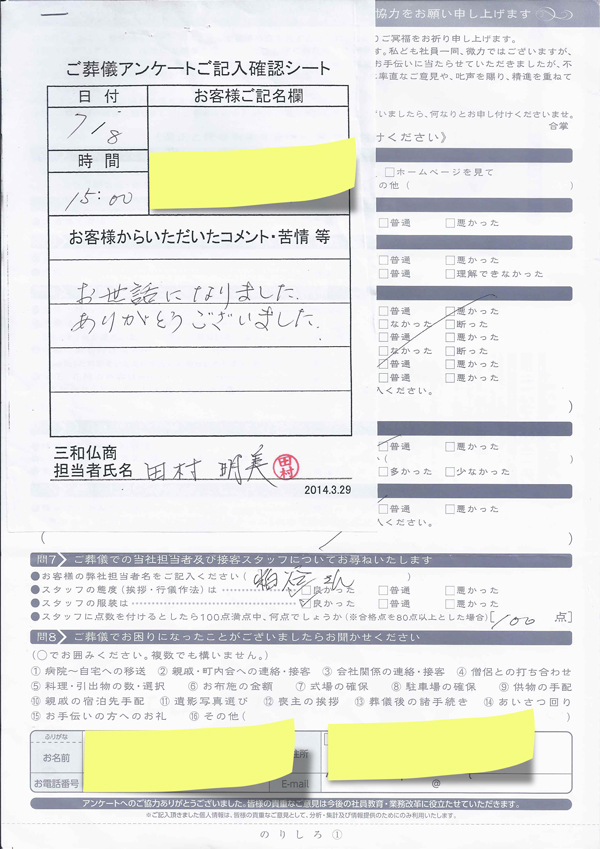 協力をお願い申し上げます
ご冥福をお祈り申し上げます。
す。私ども社員一同、微力ではございますが、
お手伝いに当たらせていただきましたが、不
率直なご意見や、叱声を賜り、精進を重ねて
いましたら、何なりとお申し付けくださいませ。
合掌
けください》
ご葬儀アンケートご記入確認シート
日付
お客様ご記名欄
7/8
時間
15:00
お客様からいただいたコメント・苦情 等
お世話になりました.
ありがとうございました.
三和仏商
担当者氏名 田村 明美 田村
2014.3.29
□ホームページを見て
の他( )
□普通 □悪かった
□普通 □悪かった
□普通 □理解できなかった
□普通 □悪かった
□なかった □断った
□普通 □悪かった
□なかった □断った
□普通 □悪かった
□普通 □悪かった
ください。
)
□普通 □悪かった
( )
□多かった □少なかった
□普通 □悪かった
ください。
( )
問7 ご葬儀での当社担当者及び接客スタッフについてお尋ねいたします
●お客様の弊社担当者名をご記入ください( さん )
●スタッフの態度(挨拶・行儀作法)は □良かった □普通 □悪かった
●スタッフの服装は □良かった □普通 □悪かった
●スタッフに点数を付けるとしたら100点満点中、何点でしょうか(※合格点を80点以上とした場合)[100 点]
問8 ご葬儀でお困りになったことがございましたらお聞かせください
(○でお囲みください。複数でも構いません。)
①病院〜自宅への移送 ②親戚・町内会への連絡・接客 ③会社関係の連絡・接客 ④僧侶との打ち合わせ
⑤料理・引出物の数・選択 ⑥お布施の金額 ⑦式場の確保 ⑧駐車場の確保 ⑨供物の手配
⑩親戚の宿泊先手配 ⑪遺影写真選び ⑫喪主の挨拶 ⑬葬儀後の諸手続き ⑭あいさつ回り
⑮お手伝いの方へのお礼 ⑯その他( )
ふりがな
お名前
住所
お電話番号
E-mail
@
アンケートへのご協力ありがとうございました。皆様の貴重なご意見は今後の社員教育・業務改革に役立たせていただきます。
※ご記入頂きました個人情報は、皆様の貴重なご意見として、分析・集計及び情報提供のためにのみ利用いたします。
のりしろ①